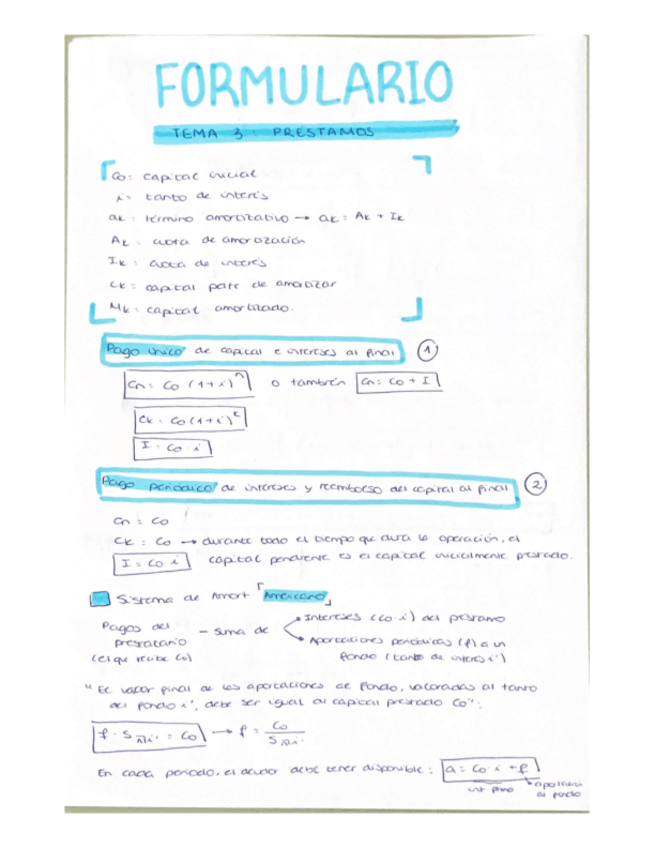 FORMULARIO
TEMA 3: PRÉSTAMOS
Co: capital inicial
i: tanto de interés
ak: término amortizativo → ak: Ak + Ik
Ak: cuota de amortización
Ik: cuota de interés
Ck: capital pdte de amortizar
Mk: capital amortizado.
Pago único de capital e intereses al final ①
Cn = Co (1+i)^n o también Cn = Co + I
Ck = Co (1+i)^k
I = Co · i
Pago periódico de intereses y reembolso del capital al final ②
Cn = Co
Ck = Co → durante todo el tiempo que dura la operación, el
I = Co · i capital pendiente es el capital inicialmente prestado.
Sistema de Amort "Americano"
Pagos del prestatario (el que recibe Co) – suma de
Intereses (Co · i) del préstamo
Aportaciones periódicas (f) a un
fondo (tanto de interés i')
"El valor final de las aportaciones al fondo, valoradas al tanto
del fondo i', debe ser igual al capital prestado Co":
f · S n¬i' = Co → f = Co / S n¬i'
En cada periodo, el deudor debe tener disponible: a = Co · i + f
int pmo
aportación
al fondo